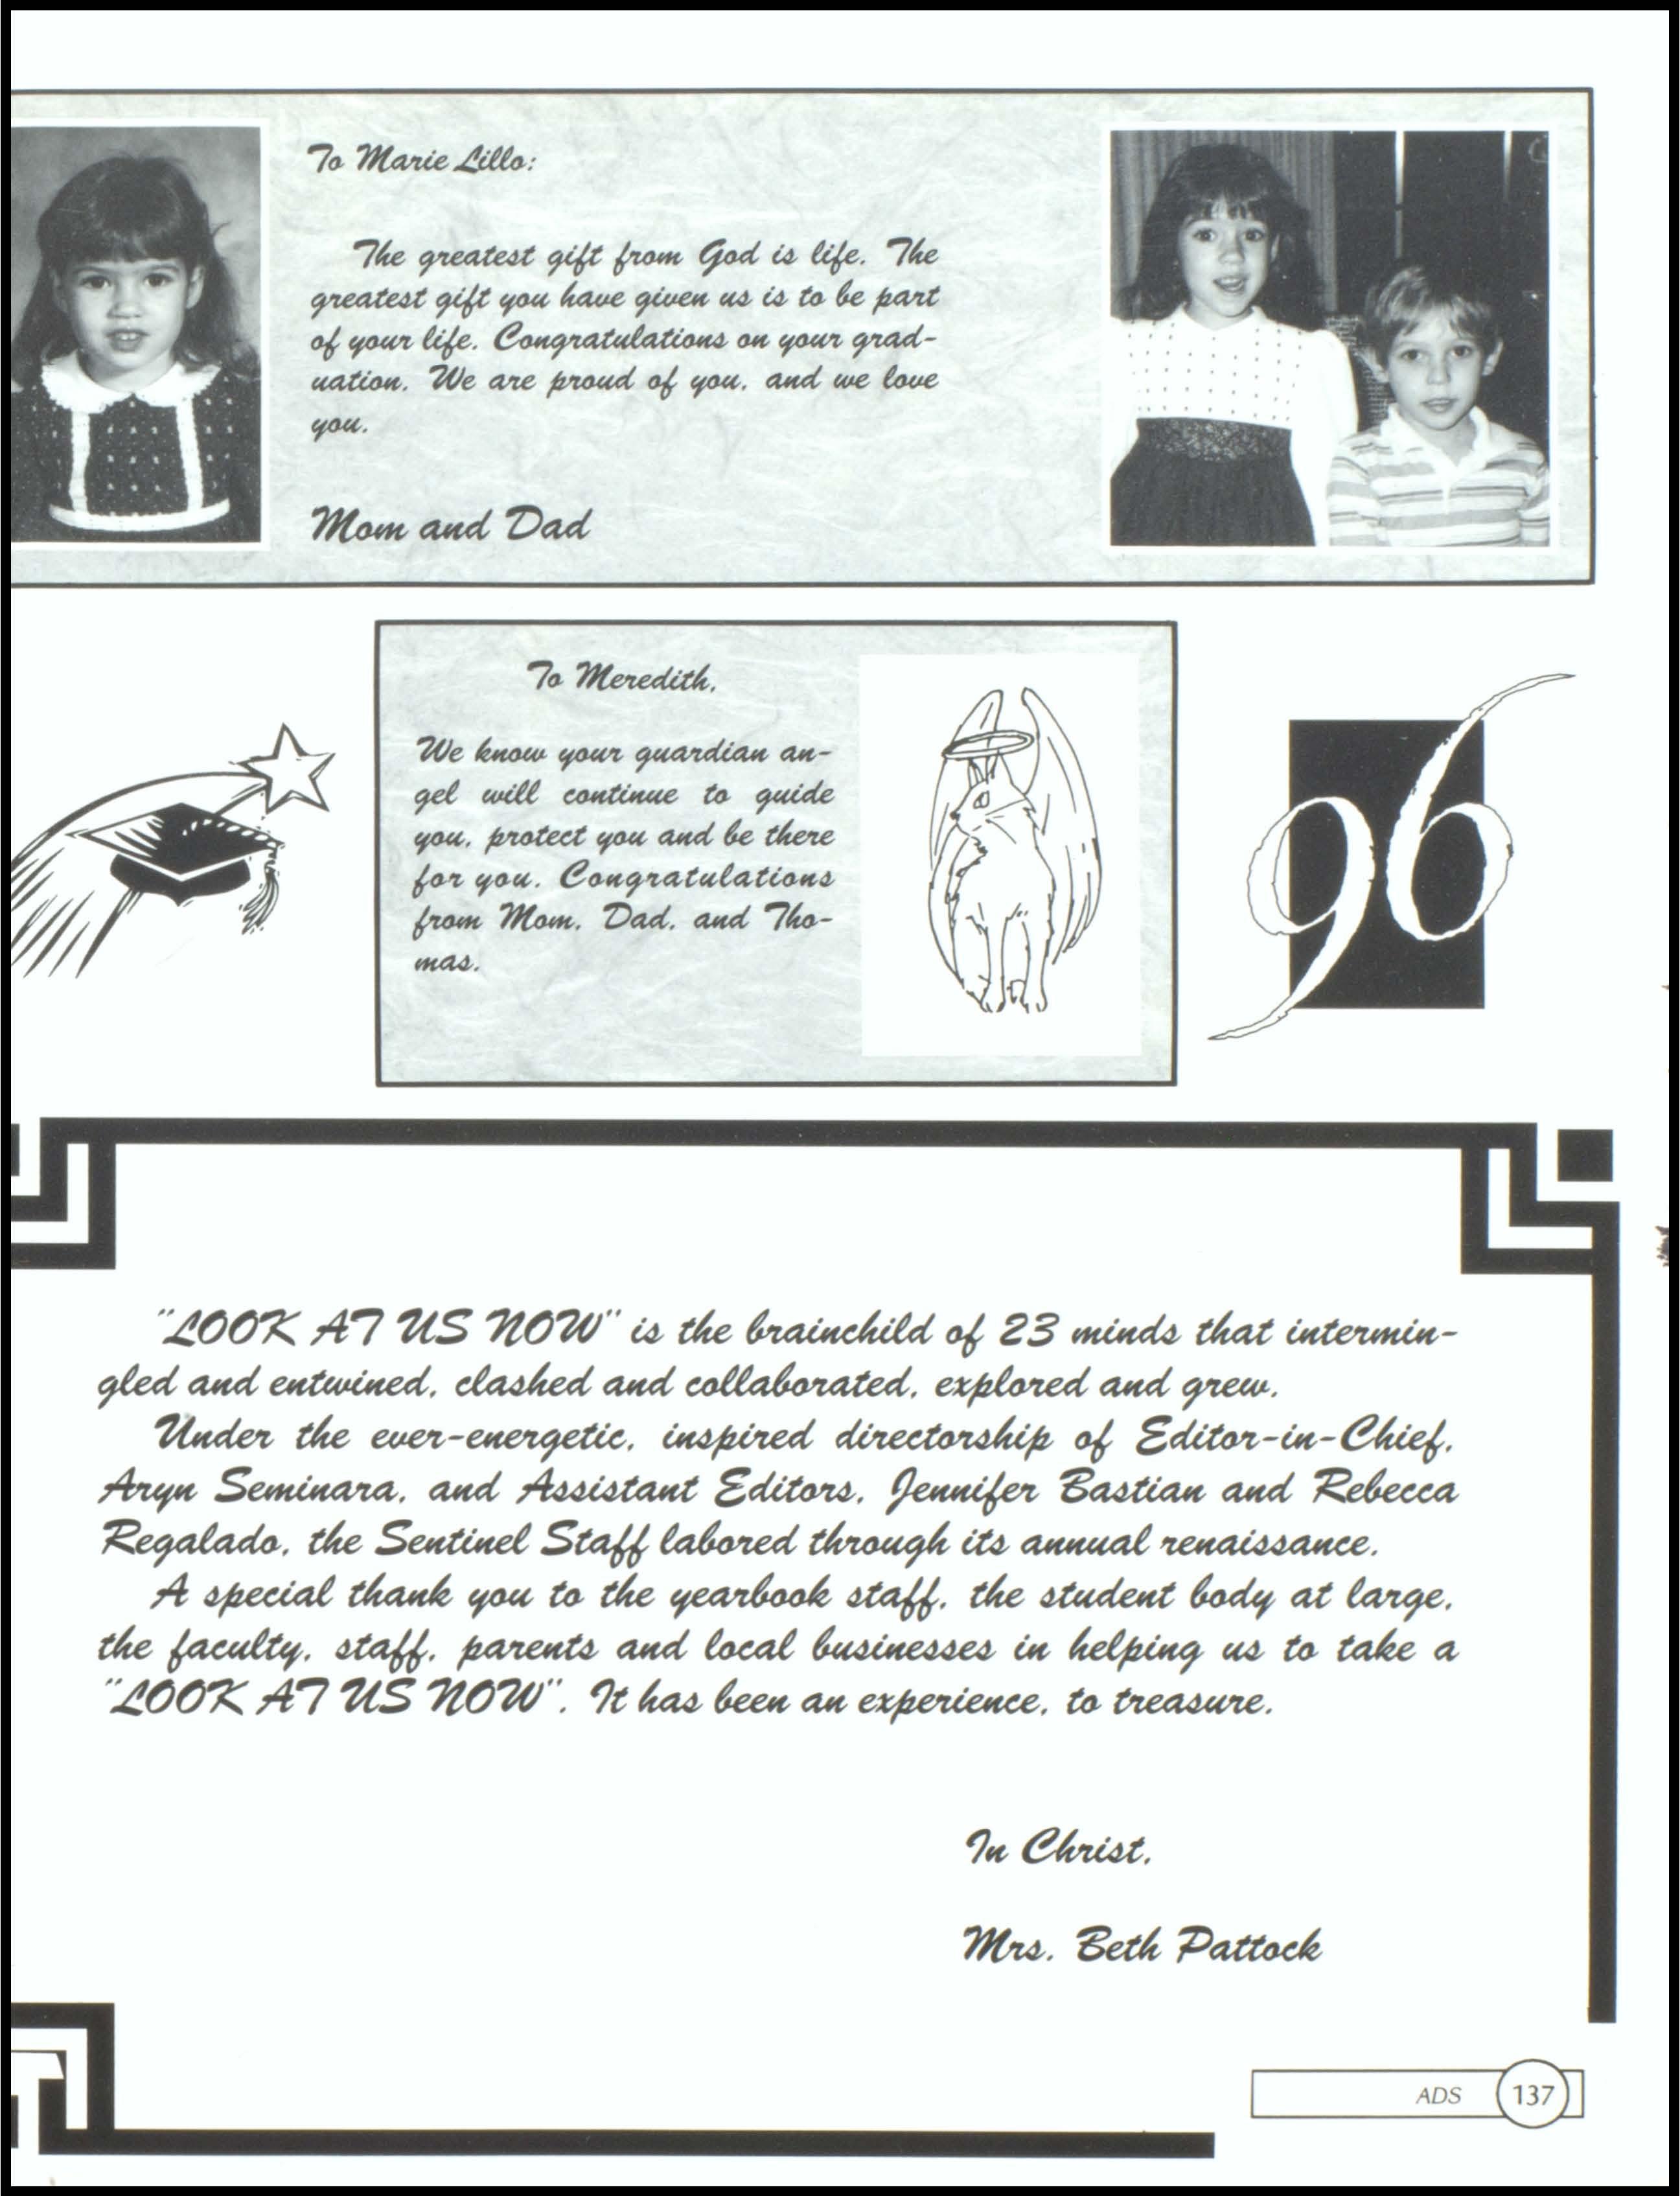 To Marie Lillo:
The greatest gift from God is life. The
greatest gift you have given us is to be part
of your life. Congratulations on your grad-
uation. We are proud of you, and we love
you.
Mom and Dad
To Meredith,
We know your guardian an-
gel will continue to guide
you, protect you and be there
for you. Congratulations
from Mom, Dad, and Tho-
mas.
96
"LOOK AT US NOW" is the brainchild of 23 minds that intermin-
gled and entwined, clashed and collaborated, explored and grew.
Under the ever-energetic, inspired directorship of Editor-in-Chief,
Aryn Seminara, and Assistant Editors, Jennifer Bastian and Rebecca
Regalado, the Sentinel Staff labored through its annual renaissance.
A special thank you to the yearbook staff, the student body at large,
the faculty, staff, parents and local businesses in helping us to take a
"LOOK AT US NOW". It has been an experience, to treasure.
In Christ,
Mrs. Beth Pattock
ADS 137